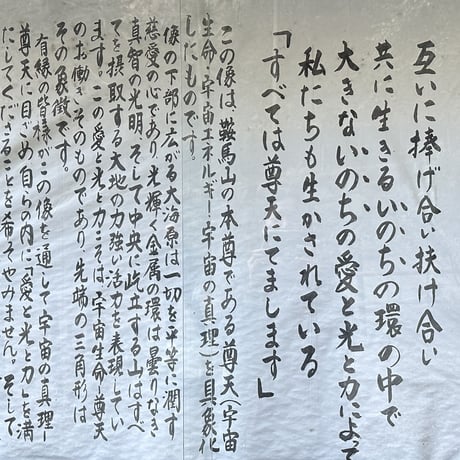 互いに捧げ合い扶け合い
共に生きるいのちの環の中で
大きないのちの愛と光と力によって
私たちも生かされている
「すべては尊天にてまします」
この像は、鞍馬山の本尊である尊天(宇宙
生命・宇宙エネルギー・宇宙の真理)を具象化
したものです。
像の下部に広がる大海原は一切を平等に潤す
慈愛の心であり、光輝く金属の環は曇りなき
真智の光明、そして中央に屹立する山はすべ
てを摂取する大地の力強い活力を表現してい
ます。この愛と光と力こそは、宇宙生命・尊天
のお働きそのものであり、先端の三角形は
その象徴です。
有縁の皆様がこの像を通して宇宙の真理―
尊天に目ざめ自らの内に「愛と光と力」を満
たしてくださることを希ってやみません。そして